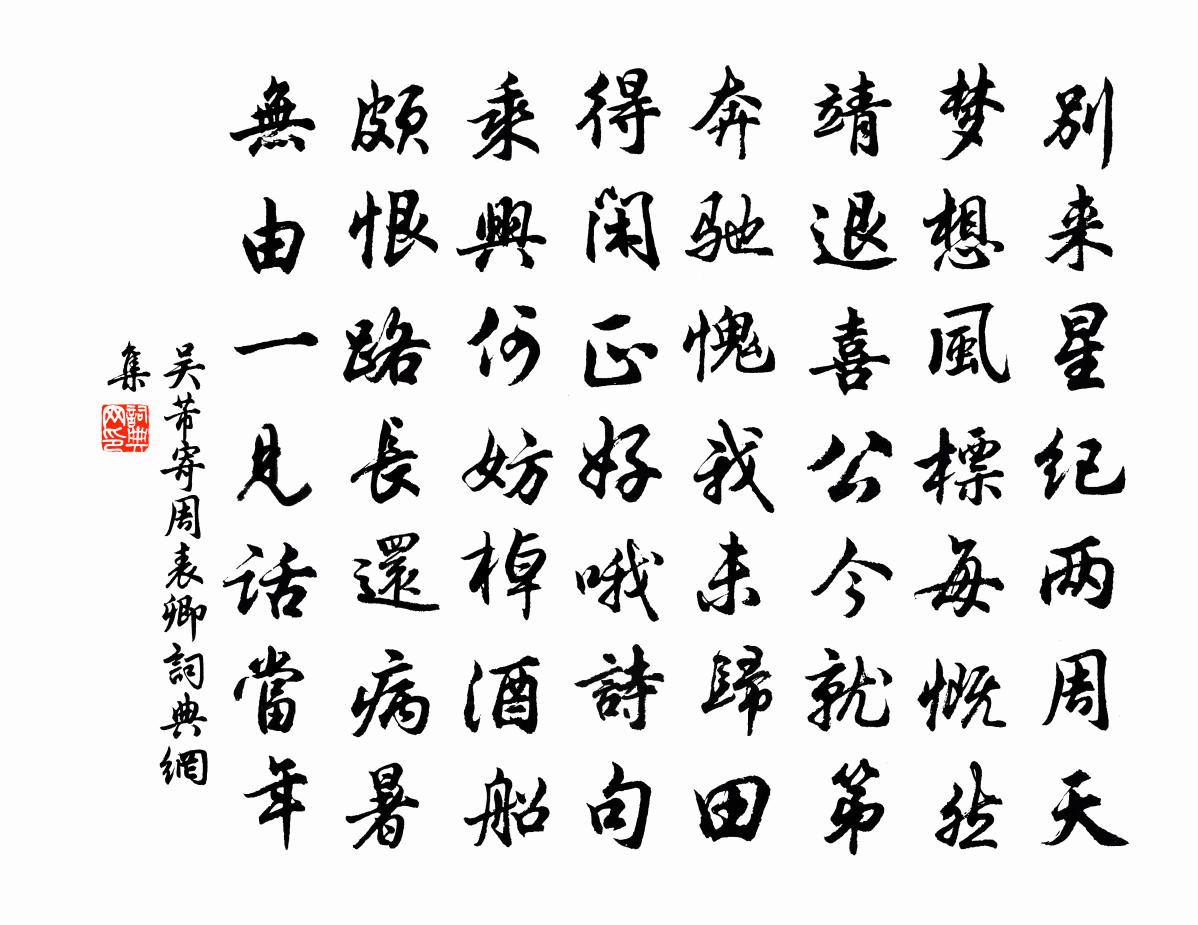 别来星纪两周天
梦想風標每慨然
靖退喜公今就第
奔驰愧我未歸田
得闲正好哦詩句
乘興何妨棹酒船
頗恨路長還病暑
無由一見話當年
吴芾寄周表卿詞典網
集
詞典
网印